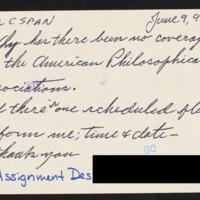 C SPAN June 9, 9
hy has there been no coverag
the American Philosophica
sociations.
f there one scheduled ple
form me; time & date
hank you
90
Assignment Des